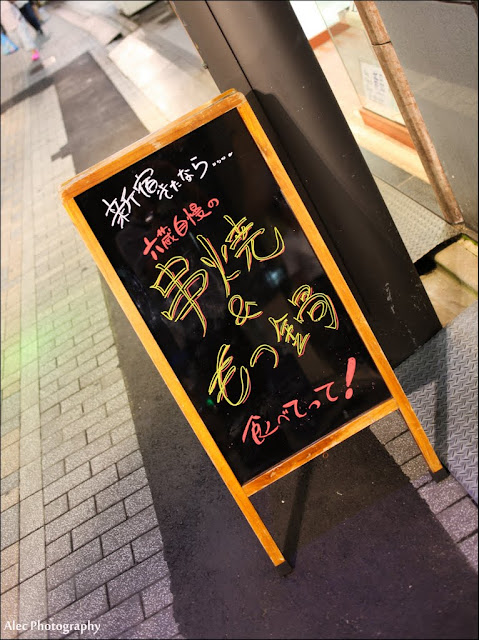 新宿きたなら....
六蔵自慢の
串焼
&
もつ鍋
食べてって!
Alec Photography